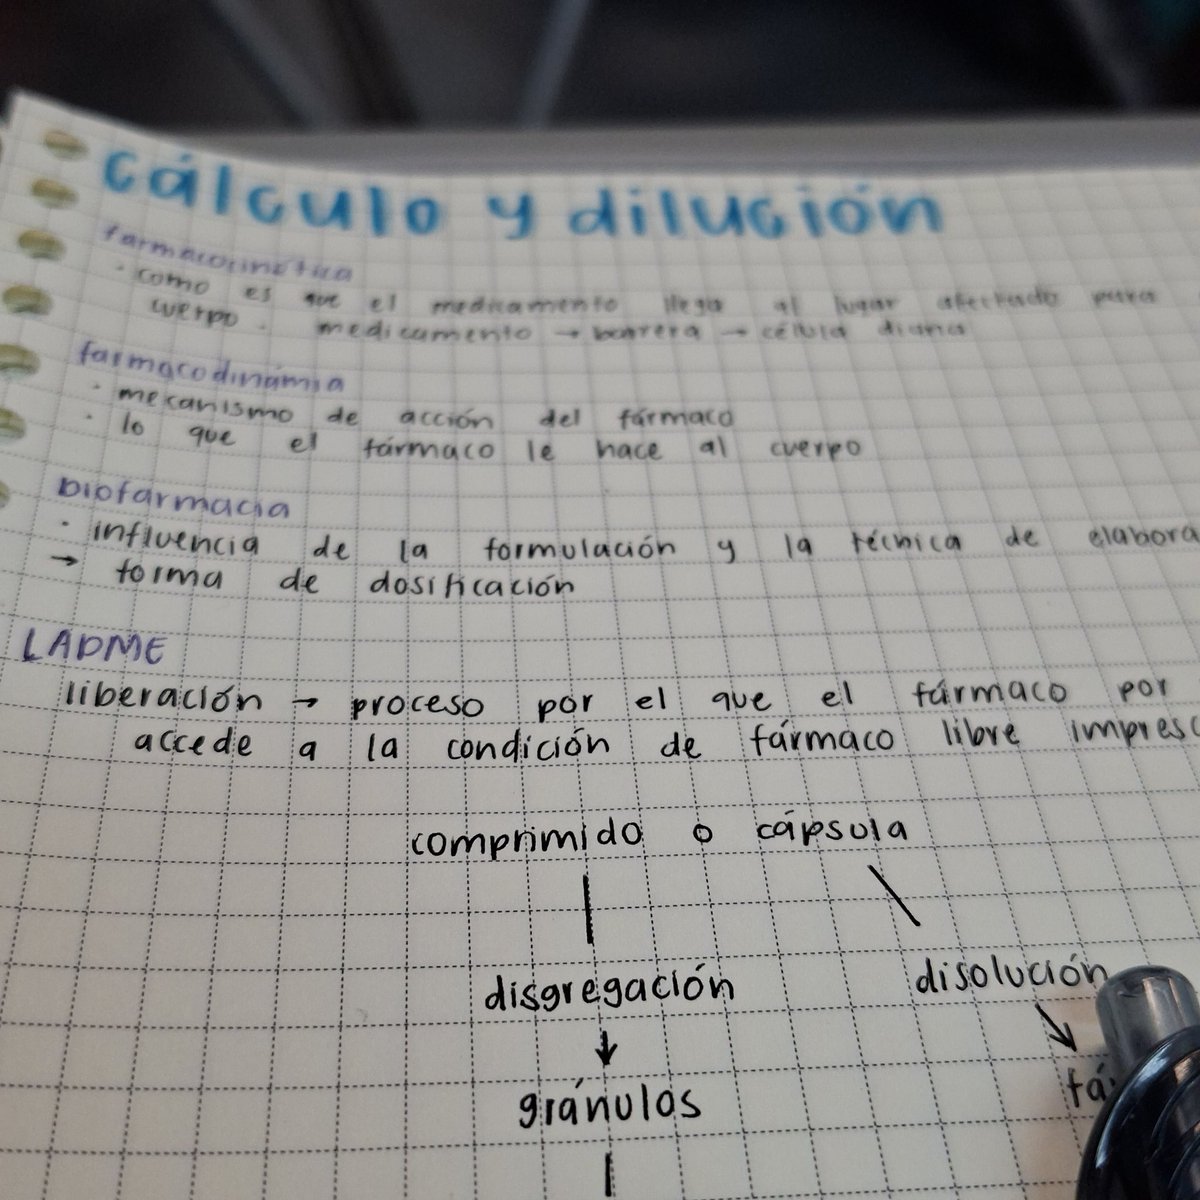 cálculo y dilución
farmacocinética
· como es que el medicamento llega al lugar afectado para
cuerpo. medicamento → barrera → célula diana
farmacodinamia
· mecanismo de acción del fármaco
· lo que el fármaco le hace al cuerpo
biofarmacia
· influencia de la formulación y la técnica de elabora
→ forma de dosificación
LADME
liberación → proceso por el que el fármaco por
accede a la condición de fármaco libre impresc
comprimido o cápsula
disgregación disolución
gránulos fá